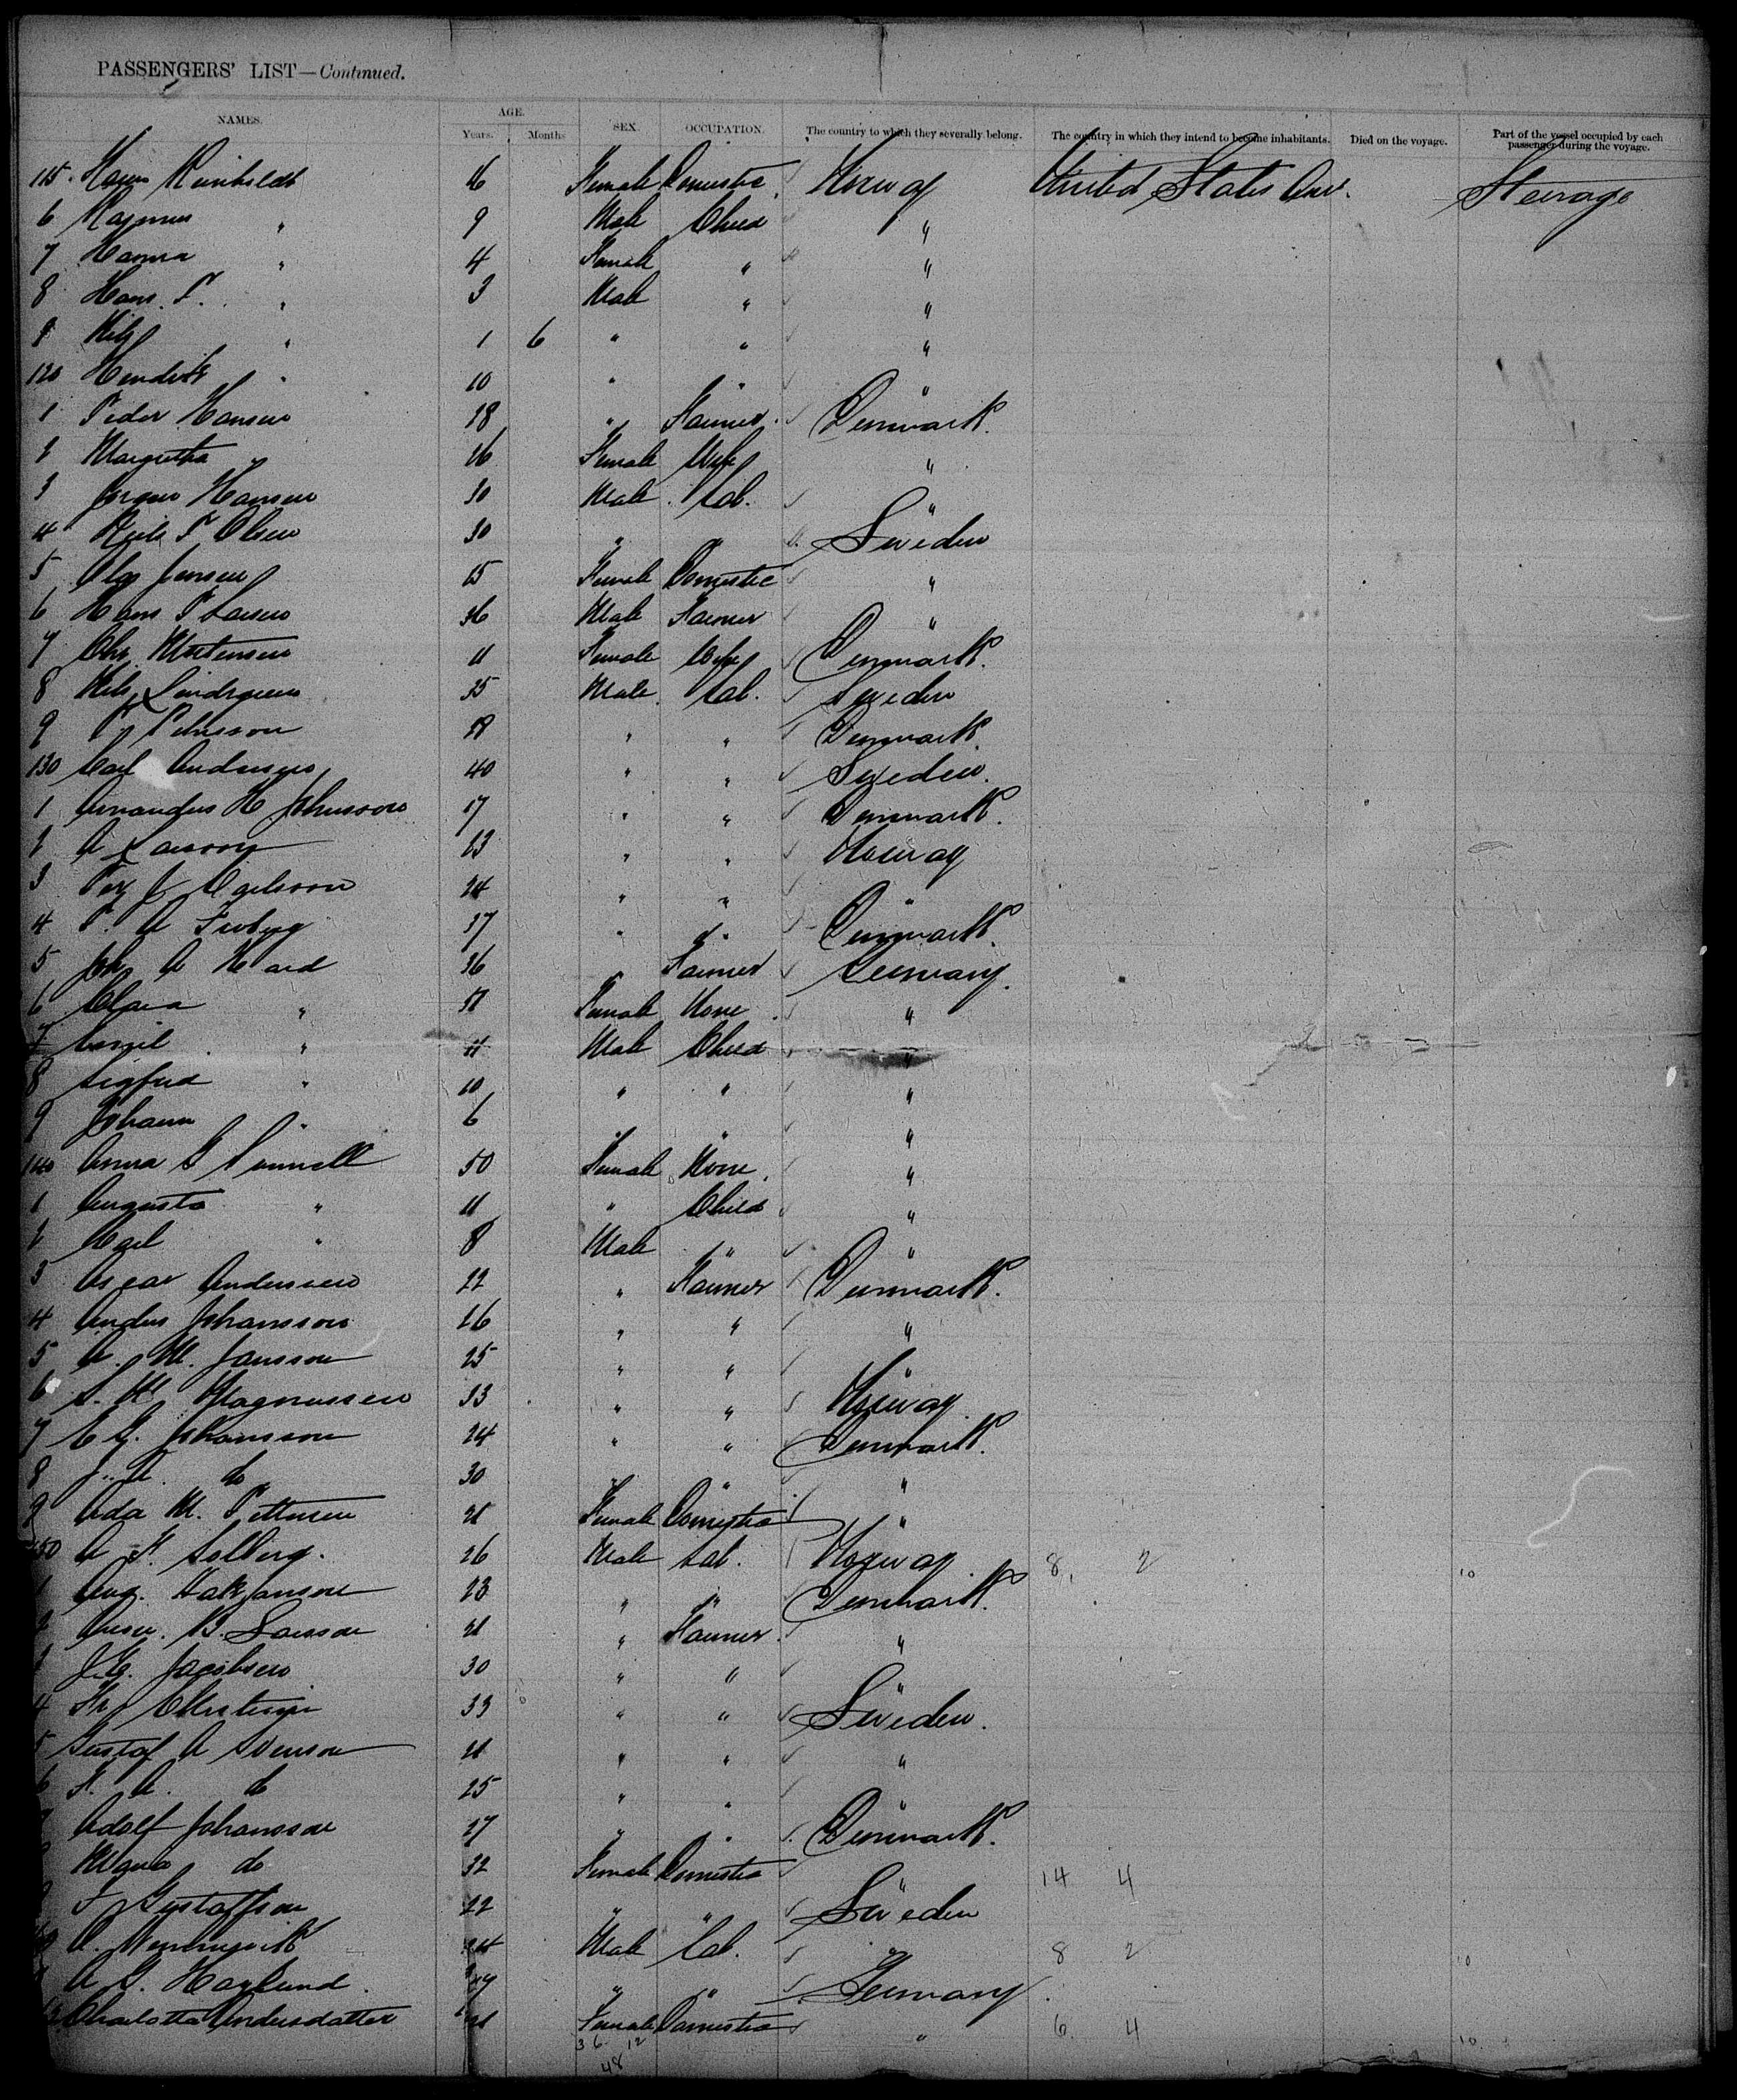 PASSENGERS' LIST—Continued.
NAMES. AGE. Years. Months SEX. OCCUPATION. The country to which they severally belong. The country in which they intend to become inhabitants. Died on the voyage. Part of the vessel occupied by each passenger during the voyage.
115 Female Domestic Norway United States Steerage
6 Rasmus " 9 Male Child "
7 Hanna " 4 Female " "
8 Hans P. " 3 Male " "
9 Nils " 1 6 " " "
120 Hendrik " 10 " " "
1 Peder Hansen 28 " Farmer Denmark
2 Margretha 26 Female Wife "
3 Jorgen Hansen 30 Male Lab. "
4 Niels P Olsen 30 " " Sweden
5 Olga Jensen 25 Female Domestic "
6 Hans P Larsen 36 Male Farmer "
7 Chr. Mortensen Female Wife Denmark.
8 Nils Lindgreen 35 Male Lab. Sweden
9 Petersson " " Denmark.
130 Carl Anderson 40 " " Sweden.
1 Amandus H Johnsson 17 " " Denmark.
2 A Larsson 23 " " Norway
3 Per J 24 " " "
4 P. A 37 " " Denmark.
5 Joh. A 36 " Farmer Germany.
6 Clara " Female None "
7 " 11 Male Child "
8 Sigfrid " 10 " " "
9 Johann " 6 " " "
140 Anna S 50 Female None "
1 Augusta " 11 " Child "
2 Carl " 8 Male " "
3 Oscar Andersen 22 " Farmer Denmark.
4 Anders Johansson 26 " " "
5 A. M. Jansson 25 " " "
6 S. M Magnussen 33 " " Norway
7 C G. Johansson 24 " " Denmark.
8 J. A. do 30 " " "
9 Ada M. Pettersen 21 Female Domestic "
150 A F. Solberg. 26 Male Lab. Norway 8 2 10
1 Aug. Isak Janson 23 " " Denmark.
2 B. Larsson 21 " Farmer "
J. G. Jacobsen 30 " " "
4 33 " " Sweden.
5 Gustaf A Svenson 21 " " "
6 F. A. do 25 " " "
Adolf Johansson 27 " " Denmark.
Maria do 32 Female Domestic " 14 4
Gustafson 22 " " Sweden
A. 24 Male Lab. " 8 2 10
A G. Haglund " " Germany
Charlotta Andersdatter 21 Female Domestic " 6 4 10
36 12
48